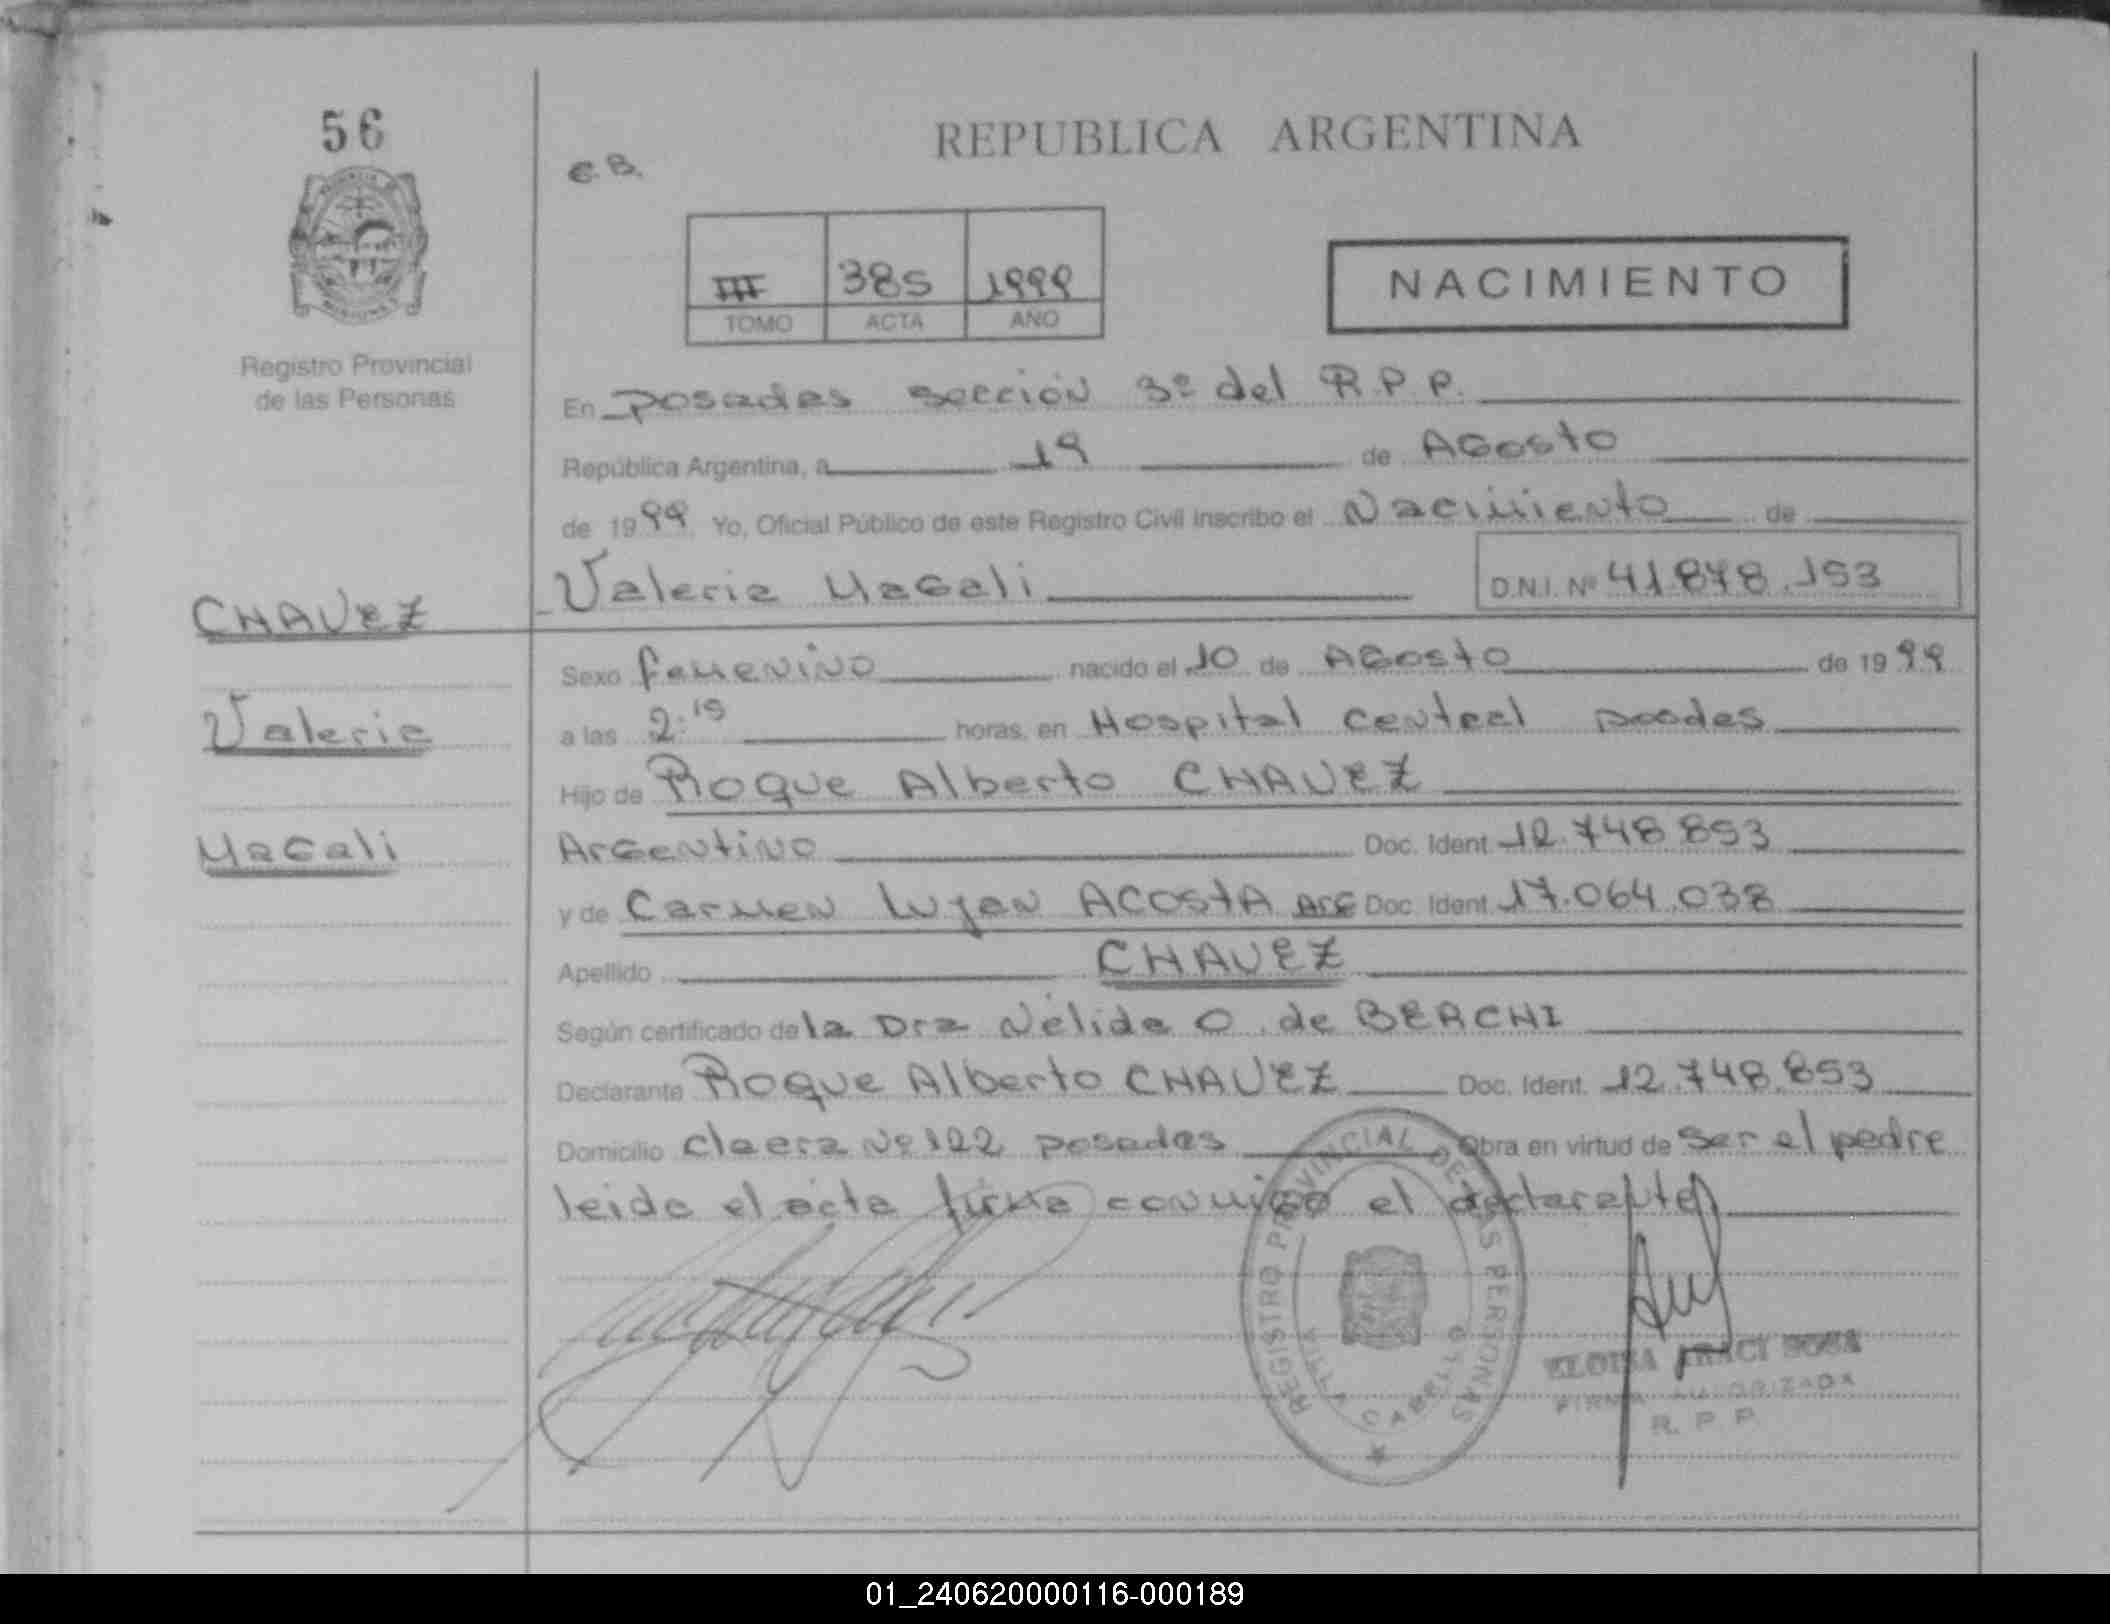 56
REPUBLICA ARGENTINA
C.B.
III 385 1999
TOMO ACTA AÑO
NACIMIENTO
Registro Provincial
de las Personas
En Posadas sección 3º del R.P.P.
República Argentina, a 19 de Agosto
de 1999 Yo, Oficial Público de este Registro Civil inscribo el Nacimiento de
Valeria Magali D.N.I. Nº 41.878.153
CHAVEZ
Valeria
Magali
Sexo femenino nacido el 10 de Agosto de 1999
a las 2:15 horas, en Hospital Central posdas
Hijo de Roque Alberto CHAVEZ
Argentino Doc. Ident. 12.748.853
y de Carmen Lujan ACOSTA Arg Doc. Ident. 17.064.038
Apellido CHAVEZ
Según certificado de la Dra Nélida O. de BERCHI
Declarante Roque Alberto CHAVEZ Doc. Ident. 12.748.853
Domicilio Nº 122 posadas Obra en virtud de ser el padre
leida el acta firma conmigo el declarante
REGISTRO PROVINCIAL DE LAS PERSONAS
VILLA CABELLO
ELOISA ARACI SOSA
FIRMA AUTORIZADA
R. P. P.
01_240620000116-000189